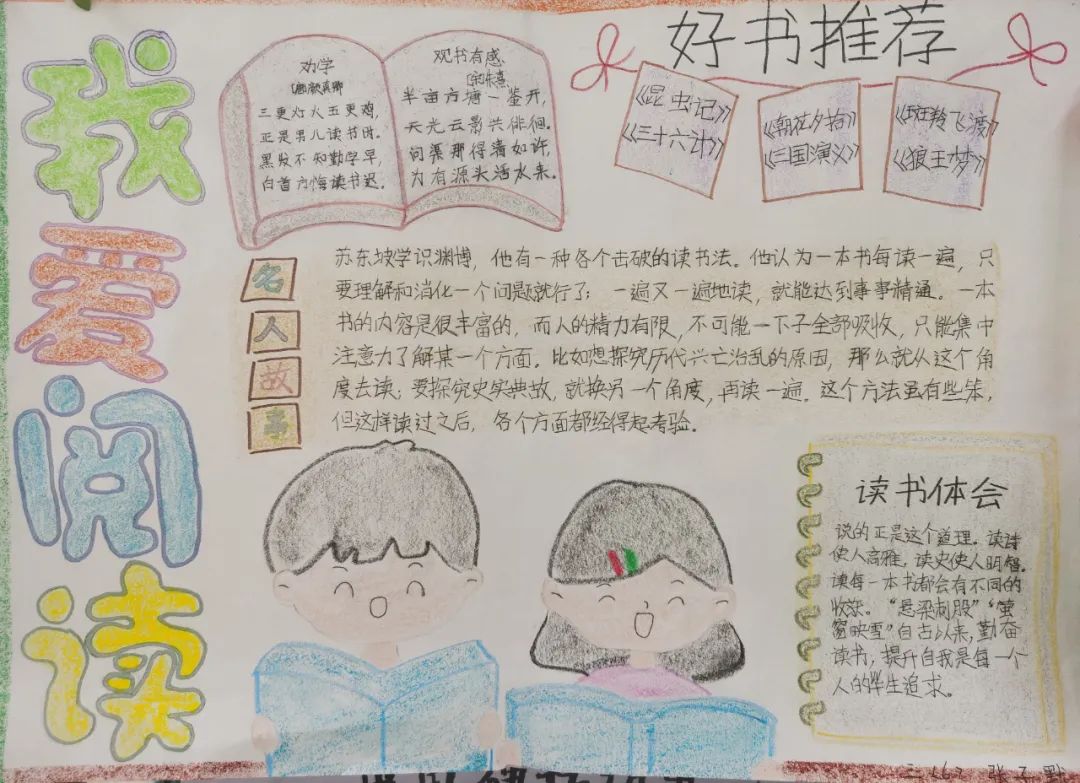 我爱阅读
劝学
三更灯火五更鸡,
正是男儿读书时。
黑发不知勤学早,
白首方悔读书迟。
观书有感
宋朱熹
半亩方塘一鉴开,
天光云影共徘徊。
问渠那得清如许,
为有源头活水来。
好书推荐
《昆虫记》
《三十六计》
《朝花夕拾》
《三国演义》
羚飞渡》
《狼王梦》
名人故事
苏东坡学识渊博,他有一种各个击破的读书法。他认为一本书每读一遍,只
要理解和消化一个问题就行了;一遍又一遍地读,就能达到事事精通。一本
书的内容是很丰富的,而人的精力有限,不可能一下子全部吸收,只能集中
注意力了解某一个方面。比如想探究历代兴亡治乱的原因,那么就从这个角
度去读;要探究史实典故,就换另一个角度,再读一遍。这个方法虽有些笨,
但这样读过之后,各个方面都经得起考验。
读书体会
说的正是这个道理。读诗
使人高雅,读史使人明智。
读每一本书都会有不同的
收获。“悬梁刺股”“萤
窗映雪”自古以来,勤奋
读书,提升自我是每一个
人的毕生追求。